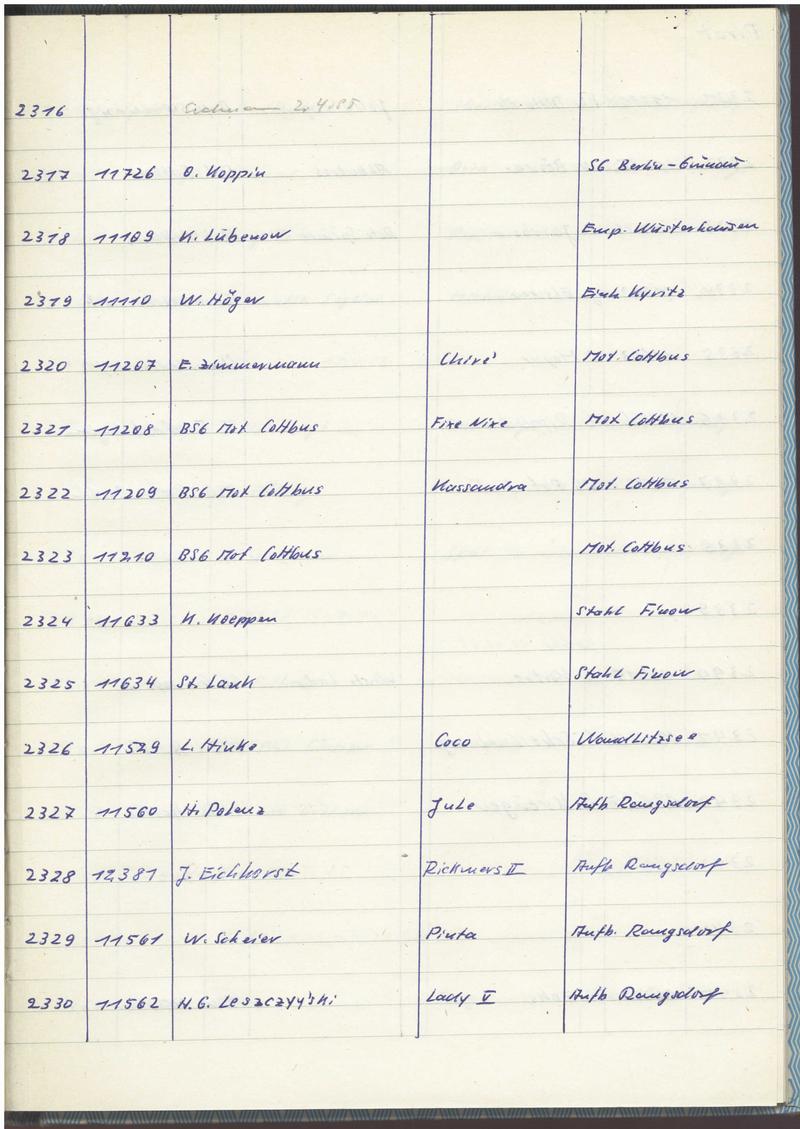 2316
2317 11726 O. Koppin SG Berlin-Grünau
2318 11109 K. Lübenow Emp. Wusterhausen
2319 11110 W. Höger Einh Kyritz
2320 11207 E. Zimmermann Chiré Mot. Cottbus
2321 11208 BSG Mot Cottbus Fixe Nixe Mot Cottbus
2322 11209 BSG Mot Cottbus Kassandra Mot. Cottbus
2323 11210 BSG Mot Cottbus Mot. Cottbus
2324 11633 K. Koeppen Stahl Finow
2325 11634 St. Lank Stahl Finow
2326 11529 L. Hinke Coco Wandlitzsee
2327 11560 H. Polenz Jule Aufb Rangsdorf
2328 12381 J. Eichhorst Rickmers II Aufb Rangsdorf
2329 11561 W. Scheier Pinta Aufb. Rangsdorf
2330 11562 H. G. Leszczyński Lady V Aufb Rangsdorf